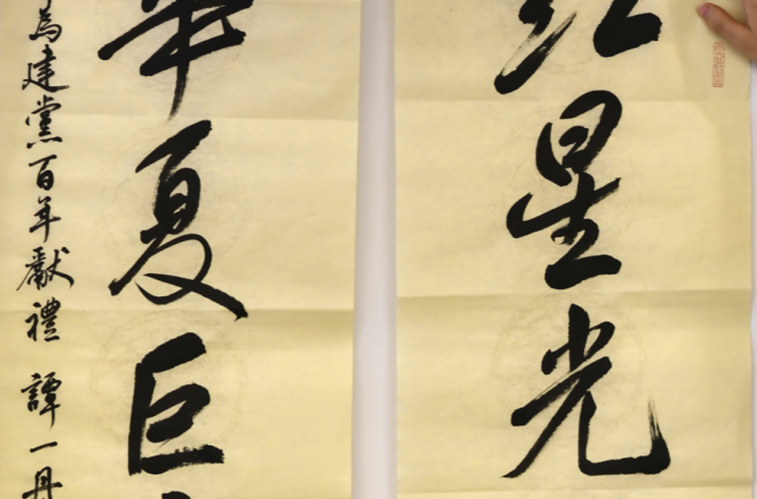 红星光
华夏巨
為建黨百年獻禮 譚一丹